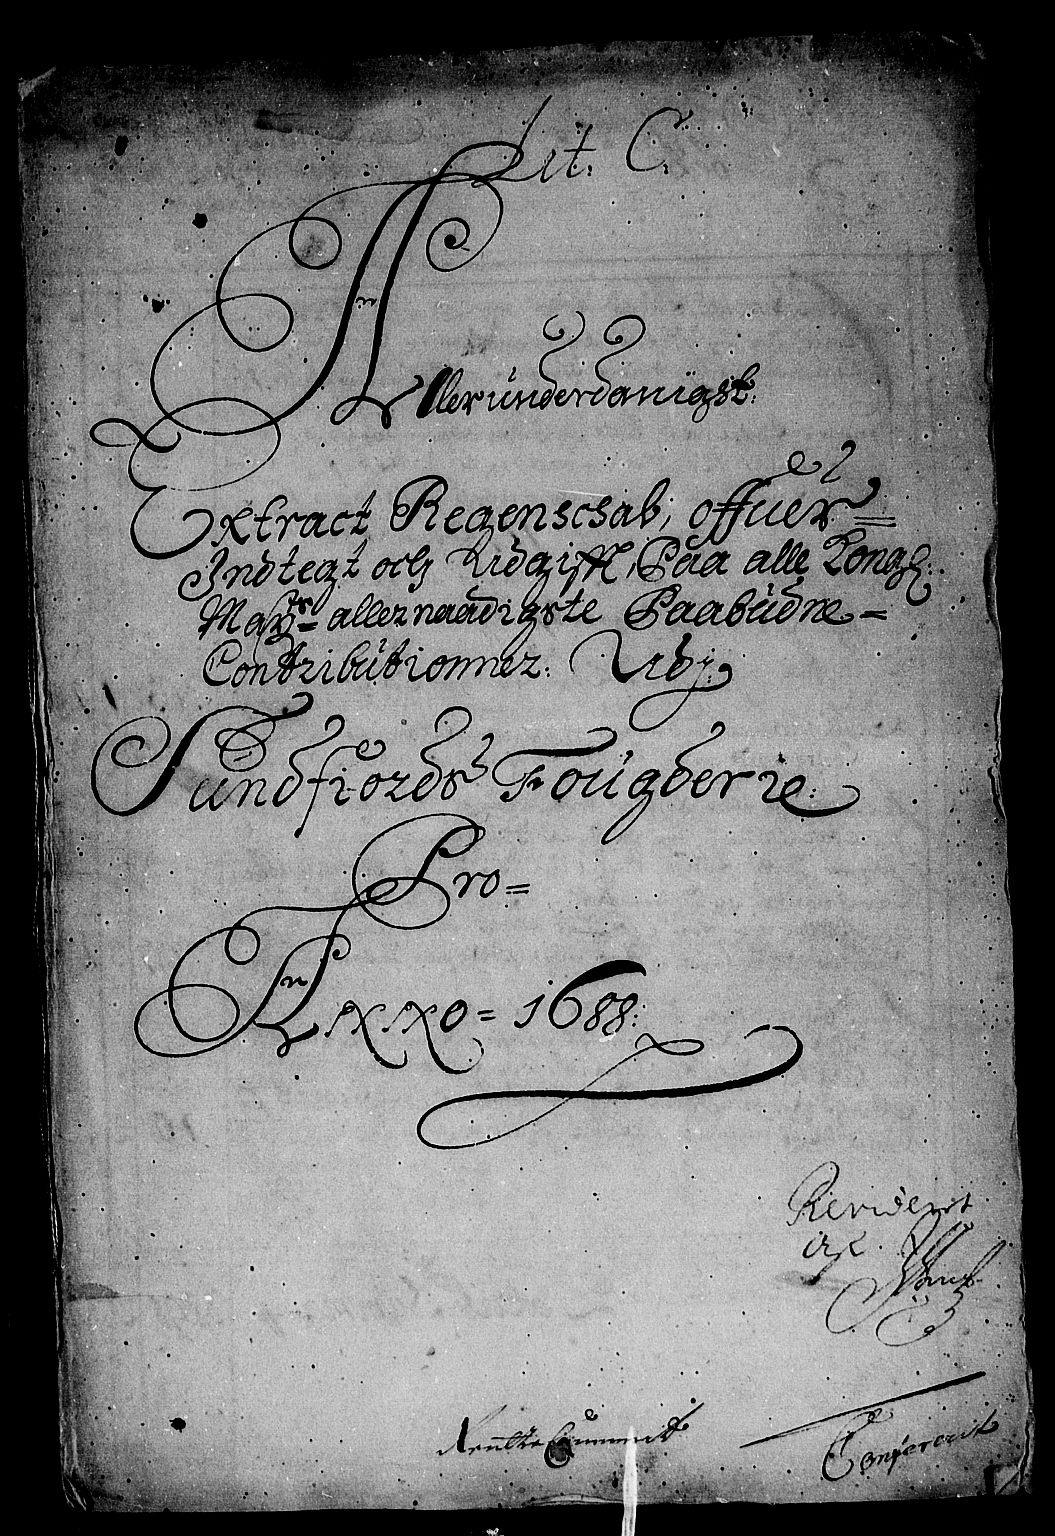 Lit. C.
Allerunderdanigst:
Extract Regenscsab, offuer=
Indtegt och Udgifft, Paa alle Kongl:
Mayts= allernaadigste Paabudne=
Contributionner: Udj
Sundfiords Fougderie:
Pro=
Anno= 1688:
Revideret
af
Confererit